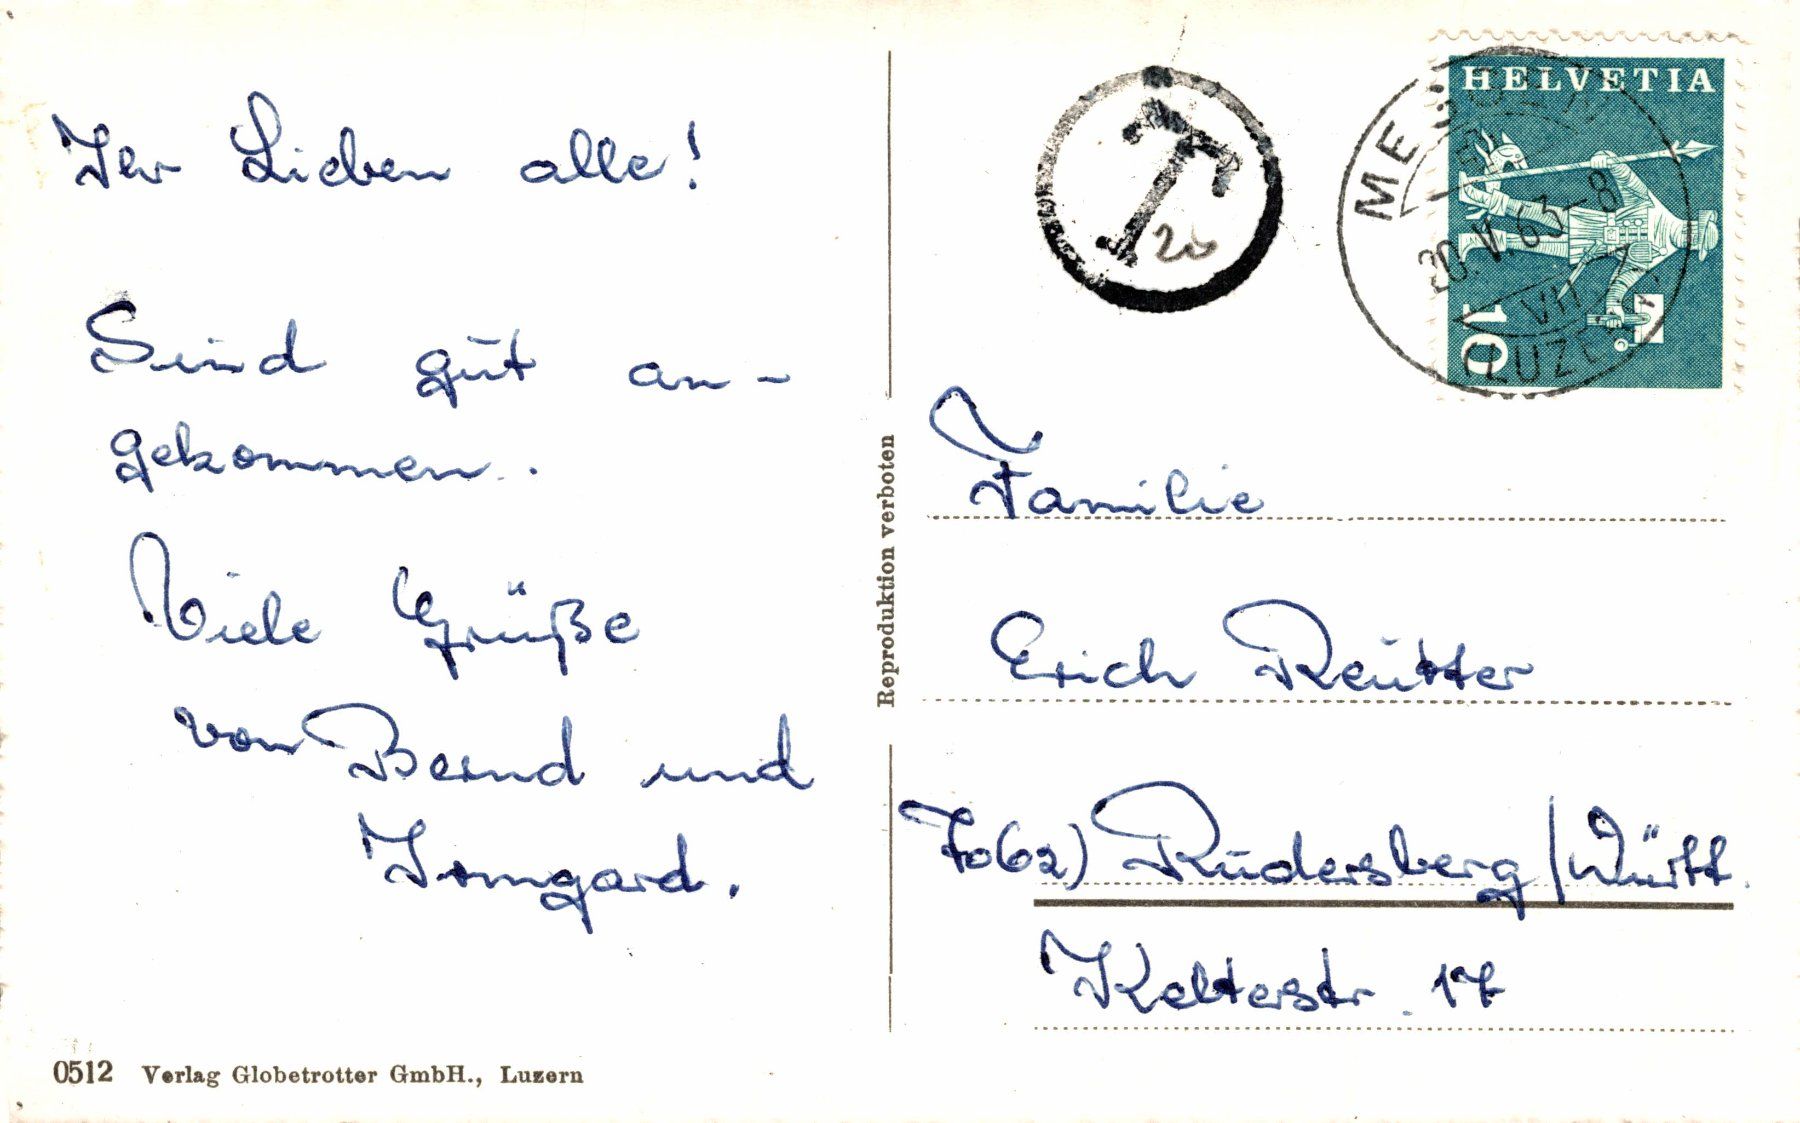 Ihr Lieben alle!
Sind gut an-
gekommen.
Viele Grüße
von Bernd und
Irmgard.
0512 Verlag Globetrotter GmbH., Luzern
Reproduktion verboten
T
20
HELVETIA
10
30.V.63-8
VII
Familie
Erich Reutter
7062) Rudersberg/Württ.
Kelterstr. 17